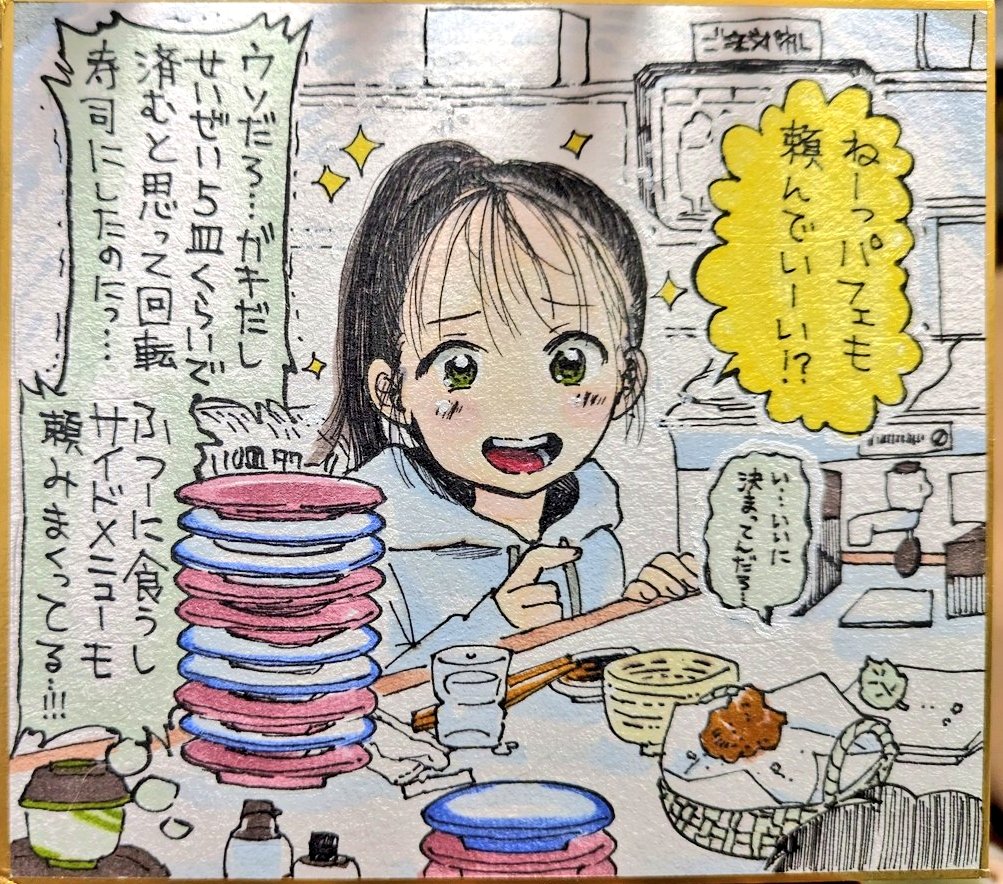 ご注文パネル
ねーっパフェも
頼んでいーい!?
い…いいに
決まってんだろ…
ウソだろ…ガキだし
せいぜい5皿くらいで
済むと思って回転
寿司にしたのにっ…
ふつーに食うし
サイドメニューも
頼みまくってる…!!!